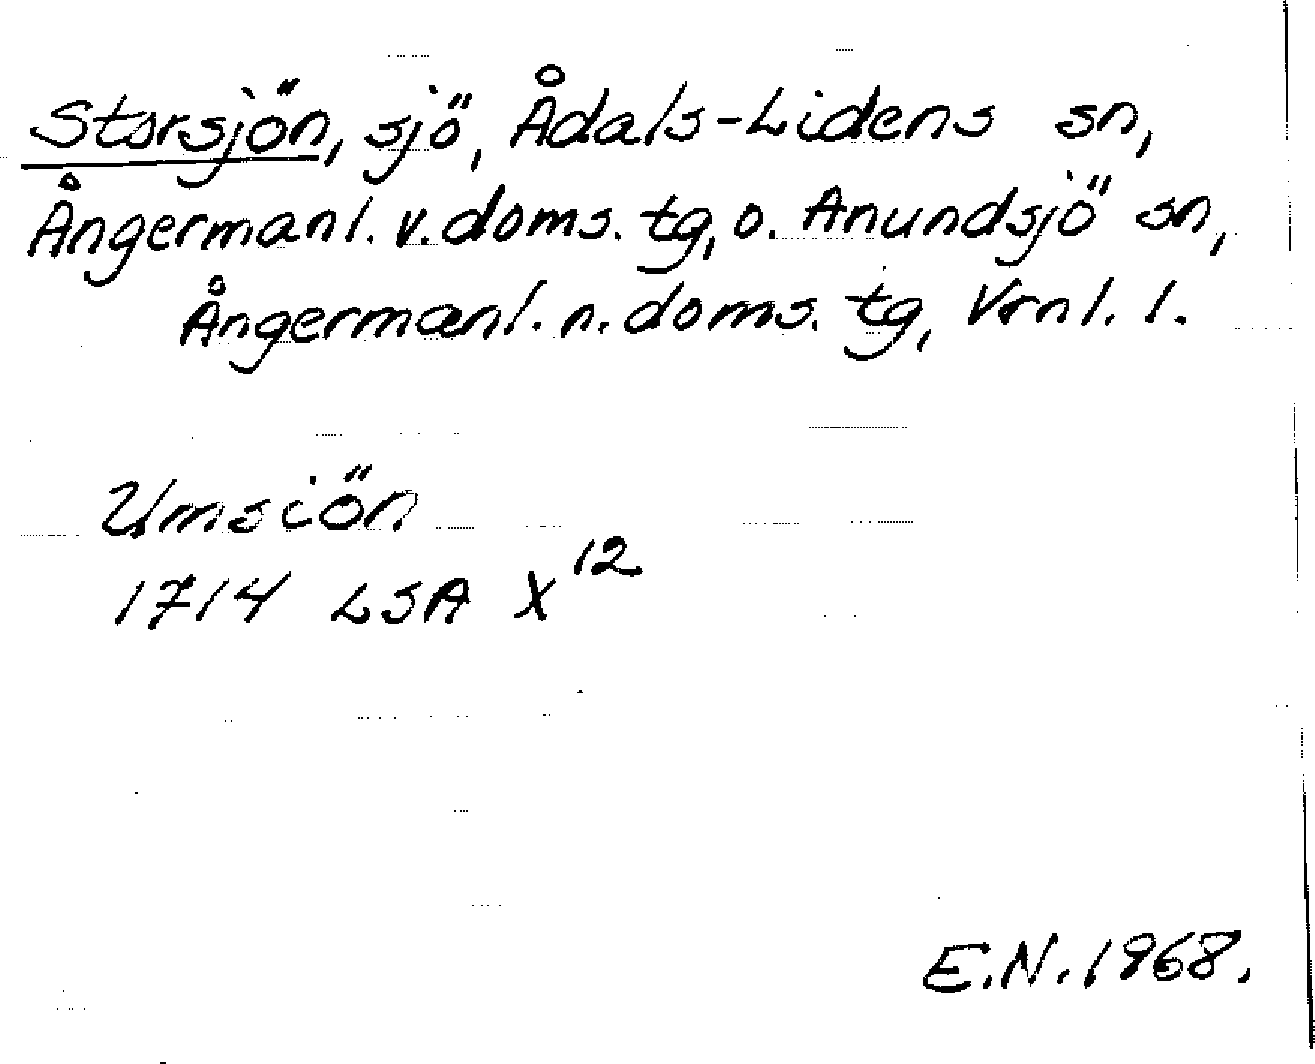 Storsjön, sjö, Ådals-Lidens sn,
Ångermanl. v. doms. tg, o. Anundsjö sn,
Ångermanl. n. doms. tg, Vrnl. l.
Umsiön
1714 LSA X 12
E.N. 1968.